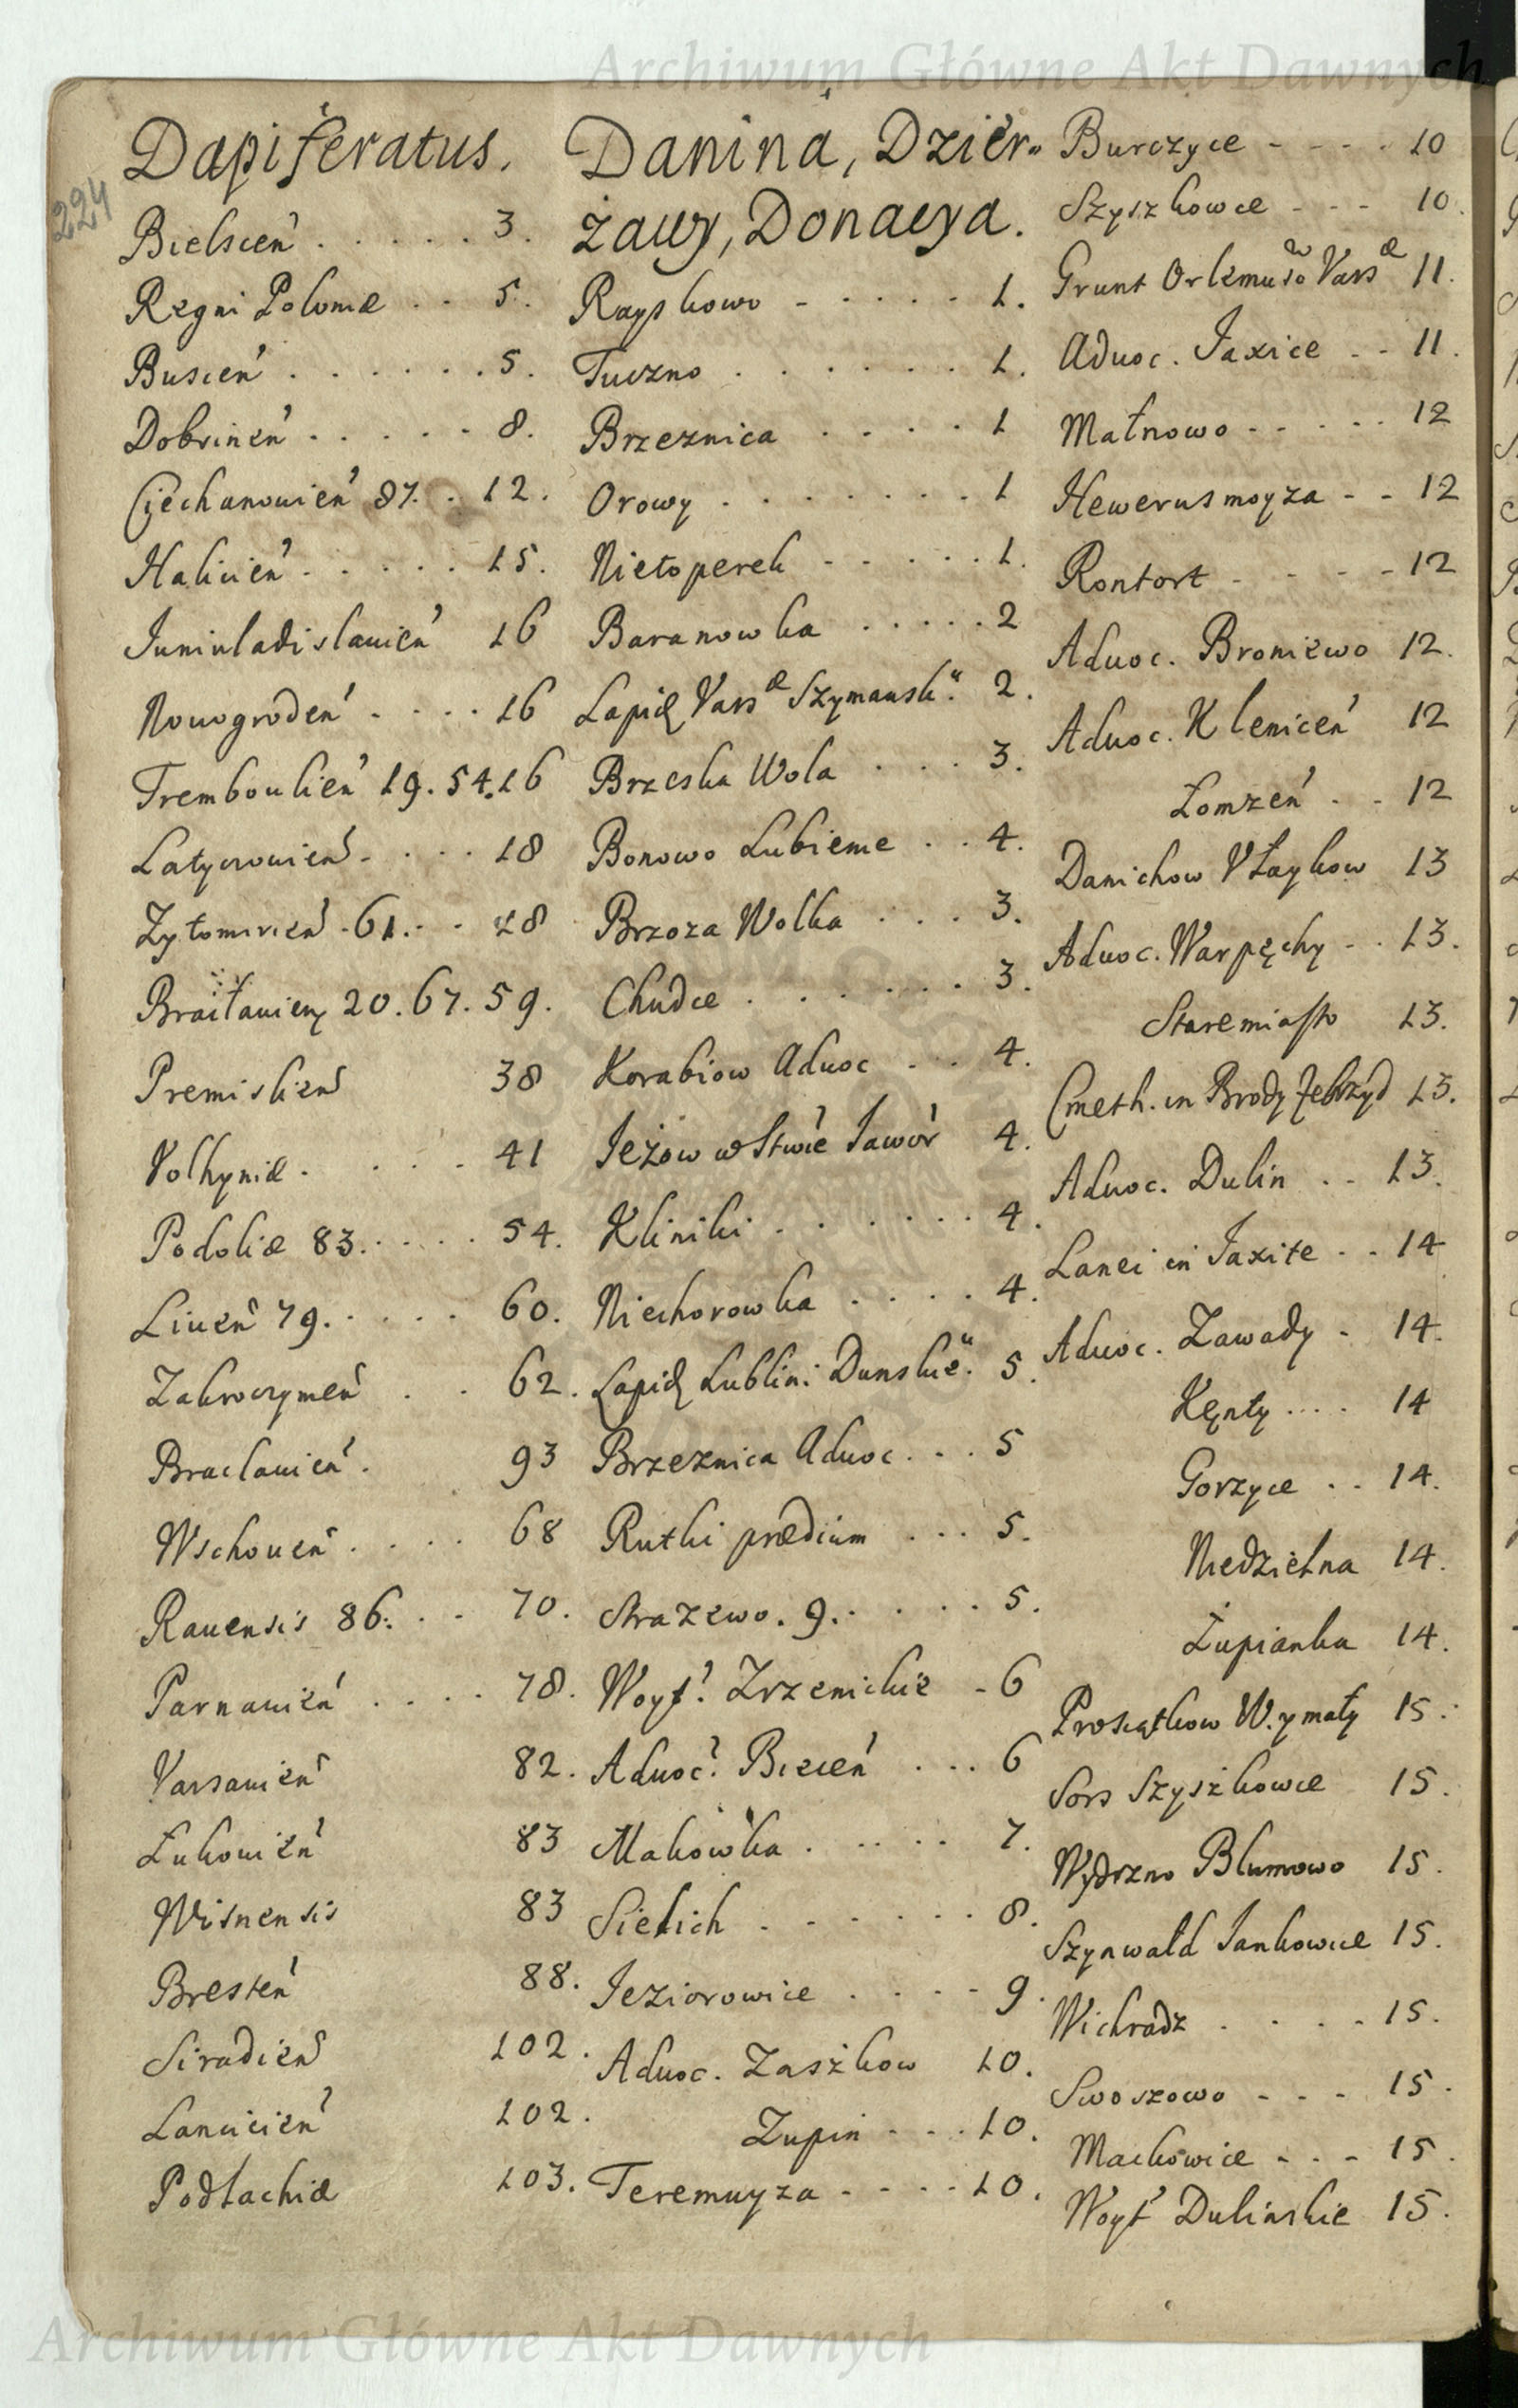 Archiwum Główne Akt Dawnych
224
Dapiferatus.
Bielscen̄ . . . . . 3.
Regni Poloniæ . . 5.
Buscen̄ . . . . . . 5.
Dobrinen̄ . . . . . 8.
Ciechanouien̄ 87. . 12.
Halicien̄ . . . . . 15.
Juniuladislauien̄ 16
Nouogroden̄ . . . . 16
Tremboulien̄ 19. 54. 16
Latyczouien̄ . . . . 18
Zytomirien̄ . 61. . . 18
Brasłauien̄ 20. 67. 59.
Premislien̄ 38
Volhyniæ . . . . 41
Podoliæ 83. . . . . 54.
Liuen̄ 79. . . . . 60.
Zakroczymen̄ . . 62.
Braclauien̄ . 93
Wschouen̄ . . . . 68
Rauensis 86. . . 70.
Parnauien̄ . . . . 78.
Varsauien̄ 82.
Łukouien̄ 83
Wisnensis 83
Bresten̄ 88.
Siradien̄ 102.
Lancicien̄ 102.
Podlachiæ 103.
Danina, Dzier-
żawy, Donacya.
Rayskowo - . . . . 1.
Tuczno . . . . . . 1.
Brzeznica . . . . 1
Orowy . . . . . . . 1
Nietoperek - . . . . 1.
Baranowka . . . . . 2
Lapid Varsæ Szymansk. 2.
Brzeska Wola . . . 3.
Bonowo Lubienie . . 4.
Brzoza Wolka . . . 3.
Chudce . . . . . . 3.
Korabiow Aduoc . . . 4.
Jeżow w Stwie Jawor 4.
Kliniki . . . . . . 4.
Niechorowka . . . . 4.
Lapid Lublin: Dunskie. 5.
Brzeznica Aduoc. . . 5
Rutki prædium . . . 5.
Strazewo. 9. . . . . 5.
Woyt. Zrzenickie - 6
Aduoc. Biecen̄ . . . 6
Makowka . . . . . 7.
Sielich . . . . . . 8.
Jeziorowice . . . - 9.
Aduoc. Zaszkow 10.
Zupin - . . 10.
Teremuyza - . . . 10.
Burczyce - . . . 10
Szyszkowce - - - 10.
Grunt Varsæ 11.
Aduoc. Jaxice . . 11.
Małnowo - - . . . 12
Hewerusmoyza - - 12
Rontort - . . . 12
Aduoc. Broniewo 12.
Aduoc. Klenicen̄ 12
Łomzen̄ . . 12
Danichow Vłaykow 13
Aduoc. Warpęchy - . 13.
Staremiasto 13.
Cmeth. in Brody Zebrzyd 13.
Aduoc. Dulin . . 13.
Lanei in Jaxite . . 14
Aduoc. Zawady . 14.
Kęnty . . . . 14
Gorzyce . . 14.
Niedzielna 14.
Łupianka 14.
Prosiatkow W. y mały 15.
Sors Szyszkowce 15.
Wydrzno Blumowo 15.
Szynwałd Jankowice 15.
Wichradz . . . . 15.
Swoszowo - - - 15.
Mackowice - - - 15.
Woyt Dulinskie 15.
Archiwum Główne Akt Dawnych